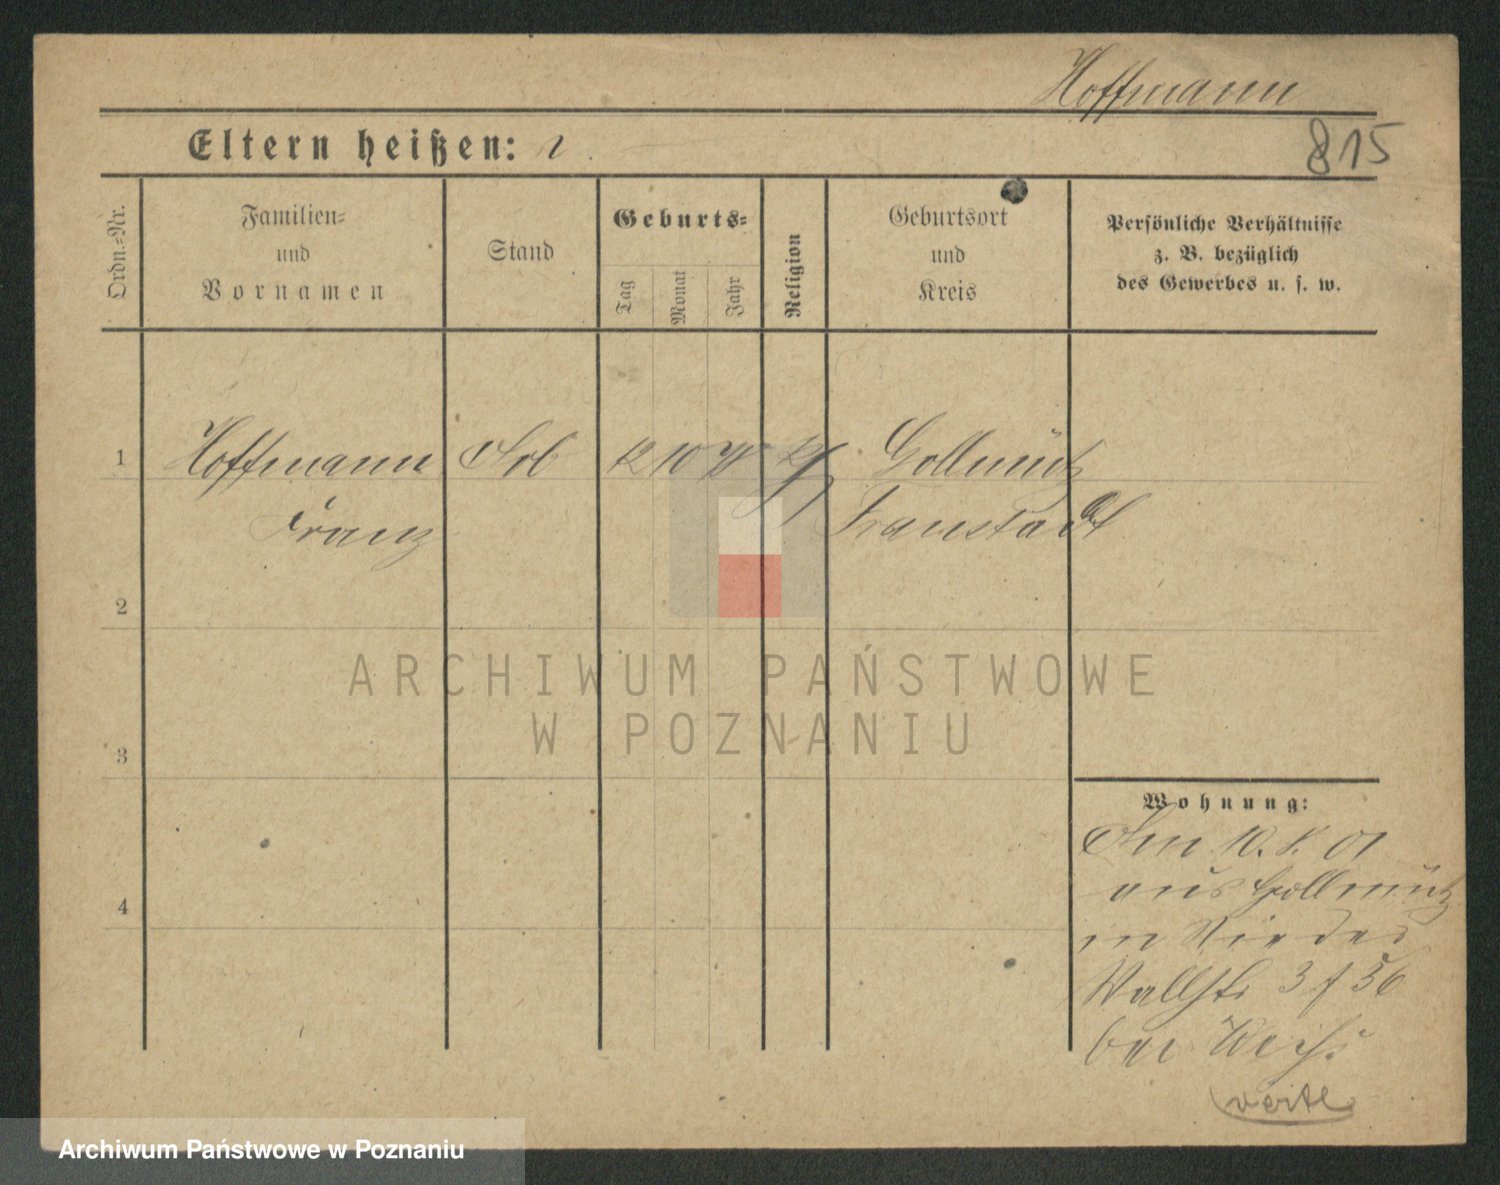 Hoffmann
815
Eltern heißen:
Ordn.-Nr.
Familien-
und
Vornamen
Stand
Geburts-
Tag
Monat
Jahr
Religion
Geburtsort
und
Kreis
Persönliche Verhältnisse
z. B. bezüglich
des Gewerbes u. s. w.
1 Hoffmann Arb 12 10 Gollmütz
Franz Fraustadt
2
3
4
ARCHIWUM PAŃSTWOWE
W POZNANIU
Wohnung:
Am 10. 8. 01
aus Gollmütz
in
Wallstr 3 f 56
bei
verte
Archiwum Państwowe w Poznaniu